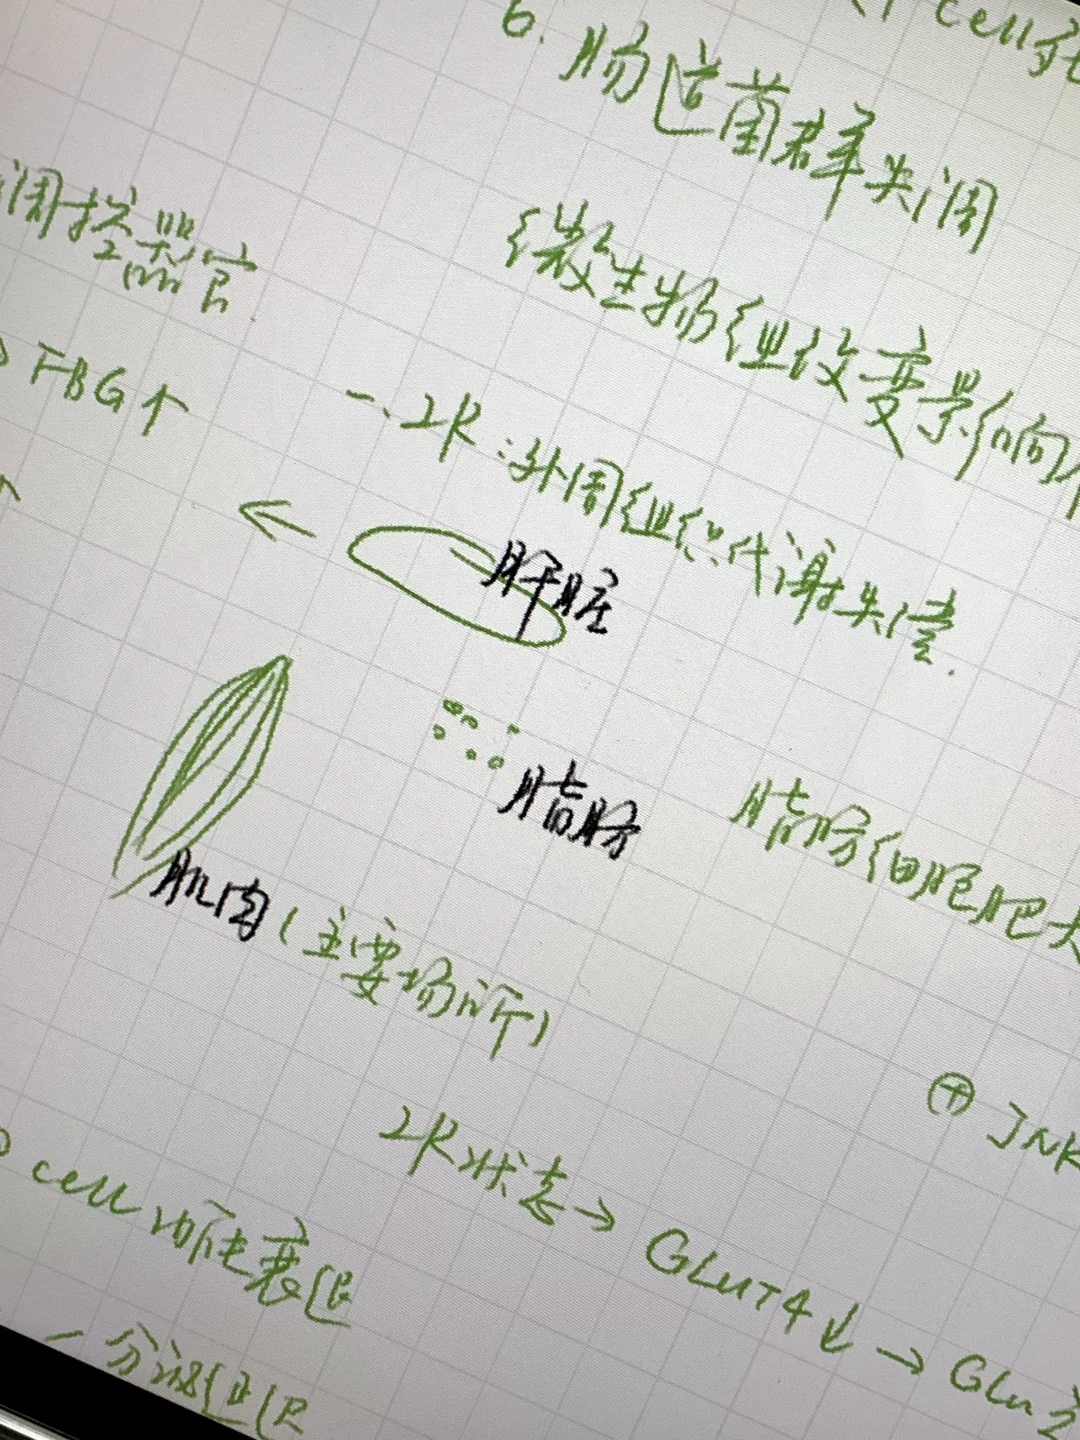 cell
6. 肠道菌群失调
调控器官
微生物组改变影响
FBG↑
一. IR:外周组织代谢失偿.
↑
←
肝脏
脂肪
脂肪细胞肥大
肌肉(主要场所)
⊕ JNK
IR状态→GLUT4↓→Glu
cell 功能衰退
分泌